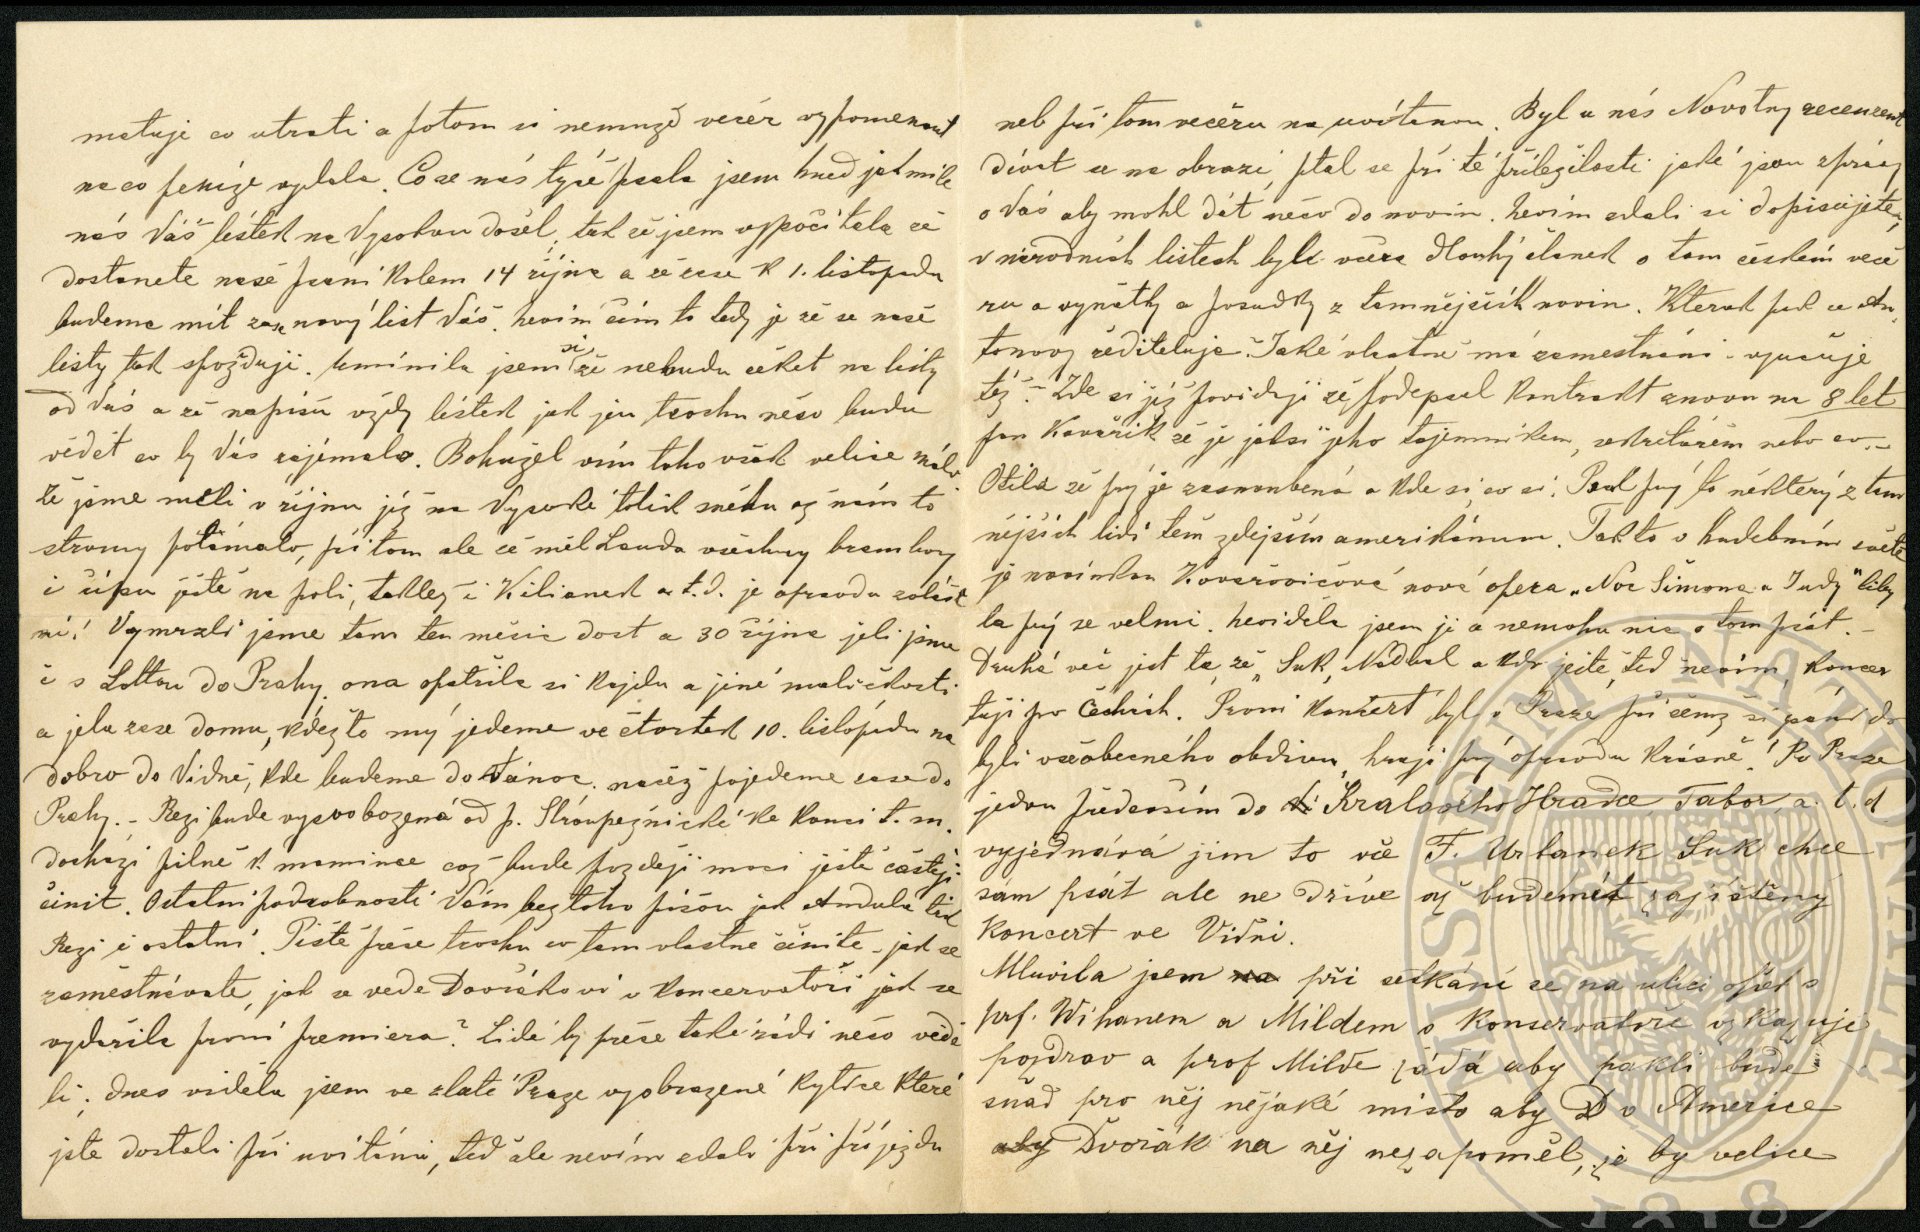 matuje co utratí a potom si nemůžě večér vzpomenout
na co peníze vydala. Co se nás týče psala jsem hned jakmile
nás Váš lístek na Vysokou došel, tak že jsem vypočítala že
dostanete naše psaní kolem 14 října a že zase k 1. listopadu
budeme mít nový list Váš. nevím čím to tedy je že se naše
listy tak spožďují. umínila jsem si že nebudu čekat na listy
od Vás a že napíšu vždy lístek jak jen trochu něco budu
vědět co by Vás zajímalo. Bohužel vím toho však velice málo
Že jsme měli v říjnu již na Vysoké tolik sněhu až nám to
stromy polámalo, při tom ale že měl Lauda všechny brambory
i řípu ještě na poli, taktéž i Kilianek a. t. d. je opravdu zvlášt
ní! Vymrzli jsme tam ten měsíc dost a 30 října jeli jsme
i s Lottou do Prahy, ona opatřila si kajdu a jiné maličkosti
a jela zase domu, kdežto my jedeme ve čtvrtek 10. listopadu na
dobro do Vídně, kde budeme do Vánoc. načéž pojedeme zase do
Prahy. – Rezi bude vysvobozená od p. Stroupeznické ke konci t. m.
dochází pilně k mamince což bude pozdeji moci ještě častěji
činit. Ostatní podrobnosti Vám beztoho píšou jak Andula tak
Rezi i ostatní. Pište přece trochu co tam vlastně činíte – jak se
zaměstnáváte, jak se vede Dvořákovi v koncervatoři jak se
vydařila první premiera? Lidé by přece také rádi něco vědě
li; dnes viděla jsem ve zlaté Praze vyobrazené kytice které
jste dostali při uvítání, teď ale nevím zdali při příjezdu
neb při tom večéru na uvítanou. Byl u nás Novotny recenzent
dívat se na obrazi, ptal se při té příležitosti jaké jsou zprávy
o Vás aby mohl dát něco do novin. nevím zdali si dopisujete,
v národních listech byl včera dlouhý članek o tom českém veče
ru a vynátky a posudky z tamnějších novin. Kterak pak se An
tonovy řediteluje? Jaké vlastně má zamestnání – vyučuje
téz? – Zde si jěž povídají že podepsal kontrakt znovu na 8 let
pan Kovařík že je jaksi jeho tajemníkem, sekretářem nebo co. –
Otila že prý je zasnoubená a kde si co si. Psal prý to některý z tam
nějších lidí těm zdejším amerikánum. Takto v hudebním světě
je novinkou Kovařovicové nová opera „Noc Šimona a Judy" líby
la prý se velmi. neviděla jsem ji a nemohu nic o tom psát. –
Druhá věc jest ta, že „Suk, Nedbal a kdo ještě, teď nevím, koncer
tují po Čechách. První končert byl v Praze při čemz si páni do
byli všeobecného obdivu, hrají prý opravdu krásně! Po Praze
jedou předevsím do Kralového Hradce, Tabor, a. t. d
vyjednává jim to vše F. Urbanek Suk chce
sam psát ale ne dříve až budemít zajištěný
koncert ve Vidni.
Mluvila jsem na při setkání se na ulici opět s
prf. Wihanem a Mildem o konservatoře vzkazuje
pozdrav a prof Milde žádá aby pakli bude
snad pro něj nějaké místo aby D v Americe
aby Dvořák na něj nezapoměl, že by velice